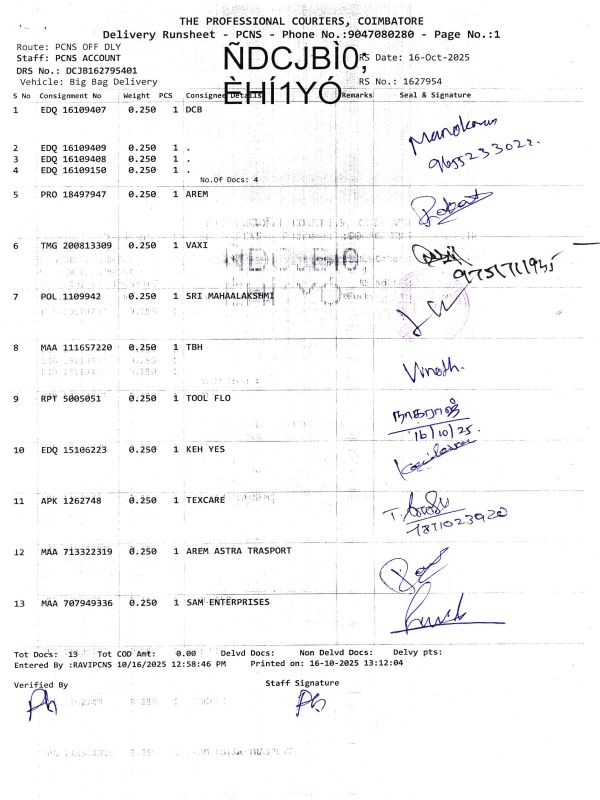 THE PROFESSIONAL COURIERS, COIMBATORE
Delivery Runsheet - PCNS - Phone No.:9047080280 - Page No.:1
Route: PCNS OFF DLY
Staff: PCNS ACCOUNT
ÑDCJBÌ0;
RS Date: 16-Oct-2025
DRS No.: DCJB162795401
Vehicle: Big Bag Delivery
ÈHÍ1YÓ
RS No.: 1627954
S No Consignment No Weight PCS Consignee Details Remarks Seal & Signature
1 EDQ 16109407 0.250 1 DCB
Manokaran
2 EDQ 16109409 0.250 1 .
9655233022.
3 EDQ 16109408 0.250 1 .
4 EDQ 16109150 0.250 1 .
No.Of Docs: 4
5 PRO 18497947 0.250 1 AREM
6 TMG 200813309 0.250 1 VAXI
7 POL 1109942 0.250 1 SRI MAHAALAKSHMI
8 MAA 111657220 0.250 1 TBH
Vinoth.
9 RPT 5005051 0.250 1 TOOL FLO
நாகராஜ்
16/10/25.
10 EDQ 15106223 0.250 1 KEH YES
11 APK 1262748 0.250 1 TEXCARE
12 MAA 713322319 0.250 1 AREM ASTRA TRASPORT
13 MAA 707949336 0.250 1 SAM ENTERPRISES
Tot Docs: 13 Tot COD Amt: 0.00 Delvd Docs: Non Delvd Docs: Delvy pts:
Entered By :RAVIPCNS 10/16/2025 12:58:46 PM Printed on: 16-10-2025 13:12:04
Verified By Staff Signature